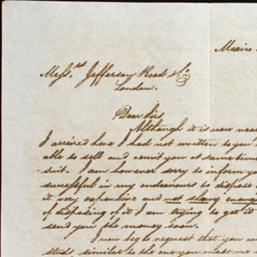 Mexico
Mess.rs Jefferson Reed & Co
London.
Dear Sir,
Although it is now near
I arrived here I had not written to you
able to sell and remit you at same time
suit. I am however sorry to inform you
successful in my endeavours to dispose
it very expensive and not
of disposing of it I am trying to get it
send you the money soon.
I now beg to request that you
similar to the one you made me